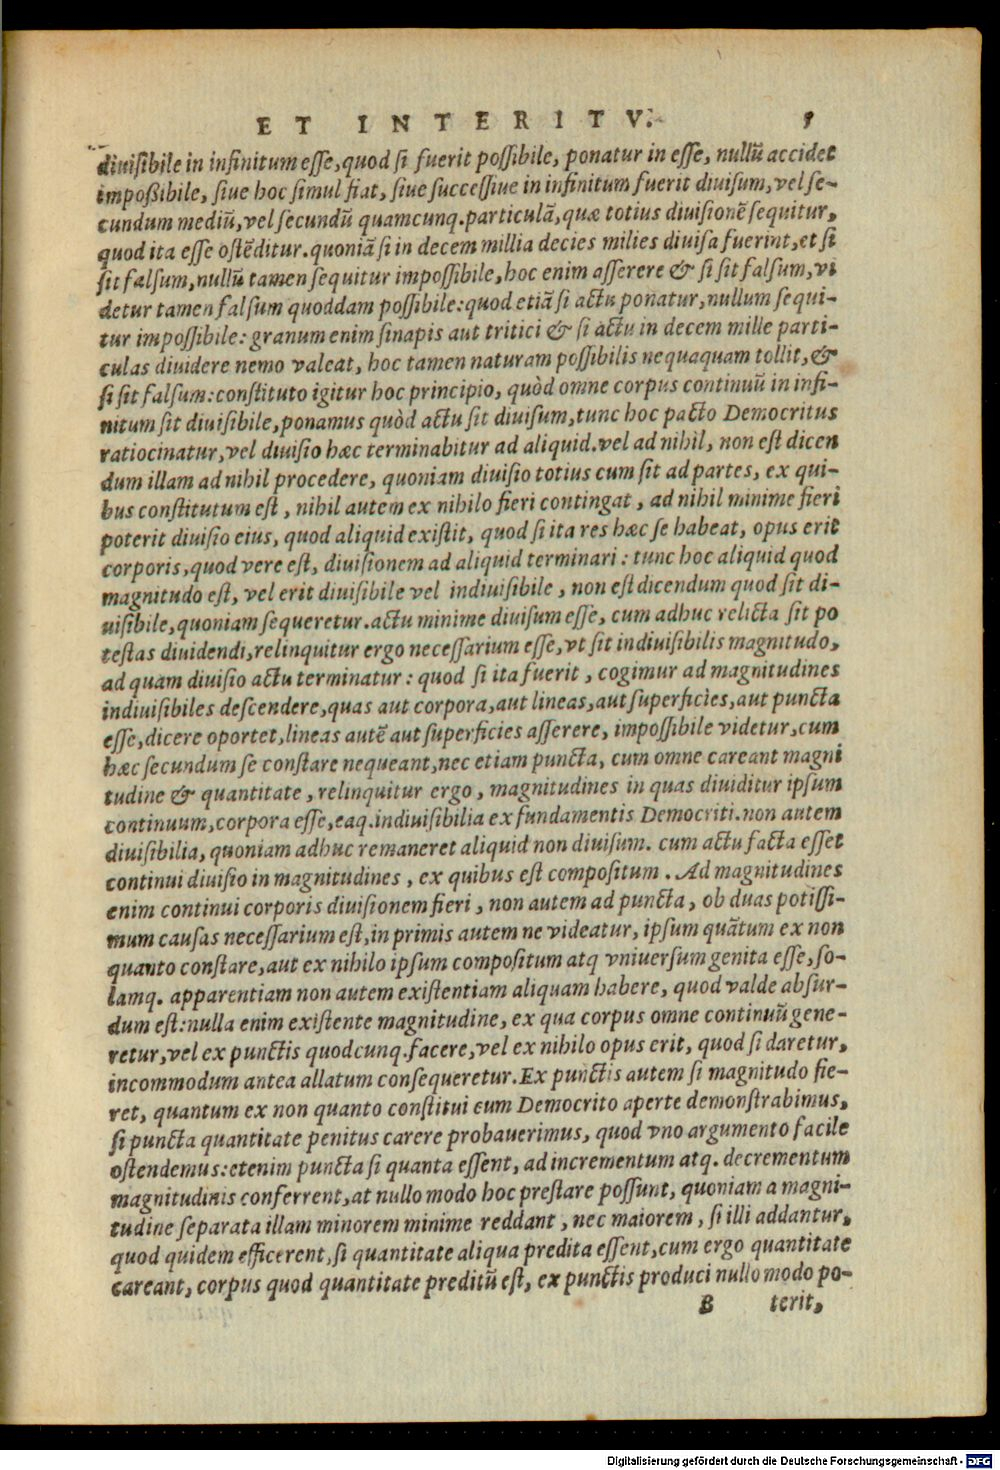 ET INTERITV.
diuisibile in infinitum esse, quod si fuerit possibile, ponatur in esse, nullū accidet
impoßibile, siue hoc simul fiat, siue successiue in infinitum fuerit diuisum, vel se-
cundum mediū, vel secundū quamcunq. particulā, quæ totius diuisionē sequitur,
quod ita esse ostēditur. quoniā si in decem millia decies milies diuisa fuerint, et si
sit falsum, nullū tamen sequitur impossibile, hoc enim asserere & si sit falsum, vi
detur tamen falsum quoddam possibile: quod etiā si actu ponatur, nullum sequi-
tur impossibile: granum enim sinapis aut tritici & si actu in decem mille parti-
culas diuidere nemo valeat, hoc tamen naturam possibilis nequaquam tollit, &
si sit falsum: constituto igitur hoc principio, quòd omne corpus continuū in infi-
nitum sit diuisibile, ponamus quòd actu sit diuisum, tunc hoc pacto Democritus
ratiocinatur, vel diuisio hæc terminabitur ad aliquid. vel ad nihil, non est dicen
dum illam ad nihil procedere, quoniam diuisio totius cum sit ad partes, ex qui-
bus constitutum est, nihil autem ex nihilo fieri contingat, ad nihil minime fieri
poterit diuisio eius, quod aliquid existit, quod si ita res hæc se habeat, opus erit
corporis, quod vere est, diuisionem ad aliquid terminari: tunc hoc aliquid quod
magnitudo est, vel erit diuisibile vel indiuisibile, non est dicendum quod sit di-
uisibile, quoniam sequeretur. actu minime diuisum esse, cum adhuc relicta sit po
testas diuidendi, relinquitur ergo necessarium esse, vt sit indiuisibilis magnitudo,
ad quam diuisio actu terminatur: quod si ita fuerit, cogimur ad magnitudines
indiuisibiles descendere, quas aut corpora, aut lineas, aut superficies, aut puncta
esse, dicere oportet, lineas autē aut superficies asserere, impossibile videtur, cum
hæc secundum se constare nequeant, nec etiam puncta, cum omne careant magni
tudine & quantitate, relinquitur ergo, magnitudines in quas diuiditur ipsum
continuum, corpora esse, eaq. indiuisibilia ex fundamentis Democriti. non autem
diuisibilia, quoniam adhuc remaneret aliquid non diuisum. cum actu facta esset
continui diuisio in magnitudines, ex quibus est compositum. Ad magnitudines
enim continui corporis diuisionem fieri, non autem ad puncta, ob duas potissi-
mum causas necessarium est, in primis autem ne videatur, ipsum quātum ex non
quanto constare, aut ex nihilo ipsum compositum atq vniuersum genita esse, so-
lamq. apparentiam non autem existentiam aliquam habere, quod valde absur-
dum est: nulla enim existente magnitudine, ex qua corpus omne continuū gene-
retur, vel ex punctis quodcunq. facere, vel ex nihilo opus erit, quod si daretur,
incommodum antea allatum consequeretur. Ex punctis autem si magnitudo fie-
ret, quantum ex non quanto constitui cum Democrito aperte demonstrabimus,
si puncta quantitate penitus carere probauerimus, quod vno argumento facile
ostendemus: etenim puncta si quanta essent, ad incrementum atq. decrementum
magnitudinis conferrent, at nullo modo hoc prestare possunt, quoniam a magni-
tudine separata illam minorem minime reddant, nec maiorem, si illi addantur,
quod quidem efficerent, si quantitate aliqua predita essent, cum ergo quantitate
careant, corpus quod quantitate preditū est, ex punctis produci nullo modo po-
B terit,
Digitalisierung gefördert durch die Deutsche Forschungsgemeinschaft - DFG